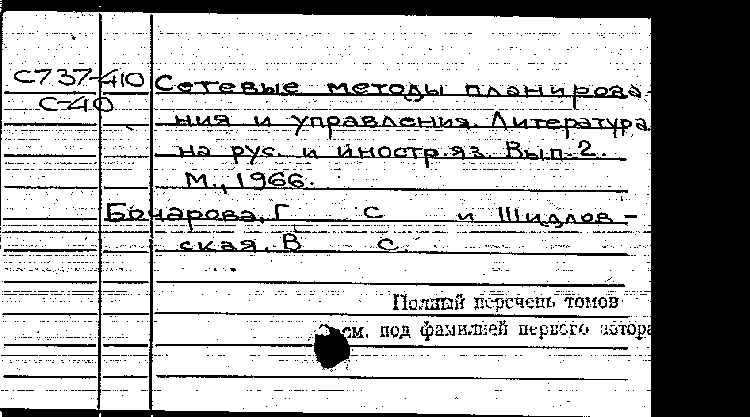 С737-410 Сетевые методы планирова-
С-40
ния и управления. Литература
на рус. и иностр. яз. Вып. 2.
М., 1966.
Бочарова, Г С и Шидлов-
ская, В С.
Полный перечень томов
см. под фамилией первого автора